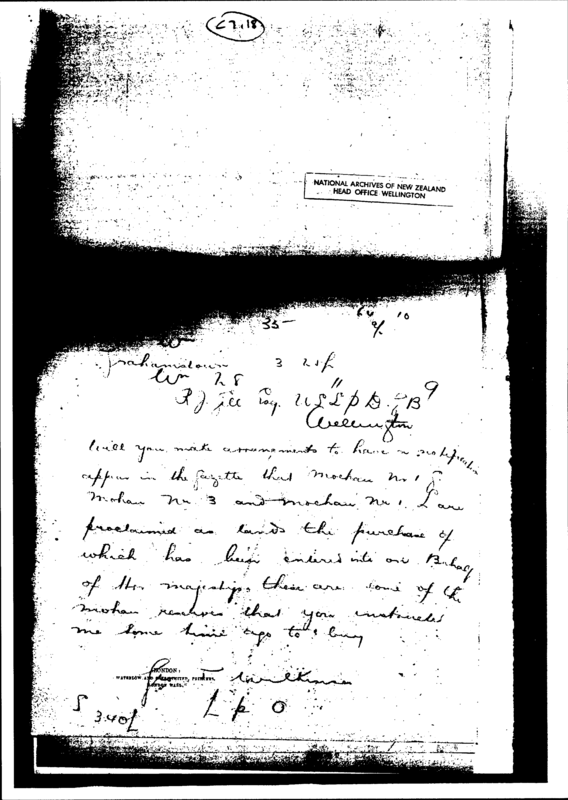 C7.18
NATIONAL ARCHIVES OF NEW ZEALAND
HEAD OFFICE WELLINGTON
35-
64 10
Grahamstown 3
28
R J Gill Esq.
Wellington
Will you make arrangements to have a notification
appear in the gazette that Moehau No 1
Mohau No 3 and Moehau No 1. L are
proclaimed as lands the purchase of
which has been entered into on Behalf
of Her majesty, these are some of the
Mohau reserves that you instructed
me some time ago to buy
LONDON:
WATERLOW AND PRINTERS,
LONDON WALL.
Wilkinson
L P O
3.40